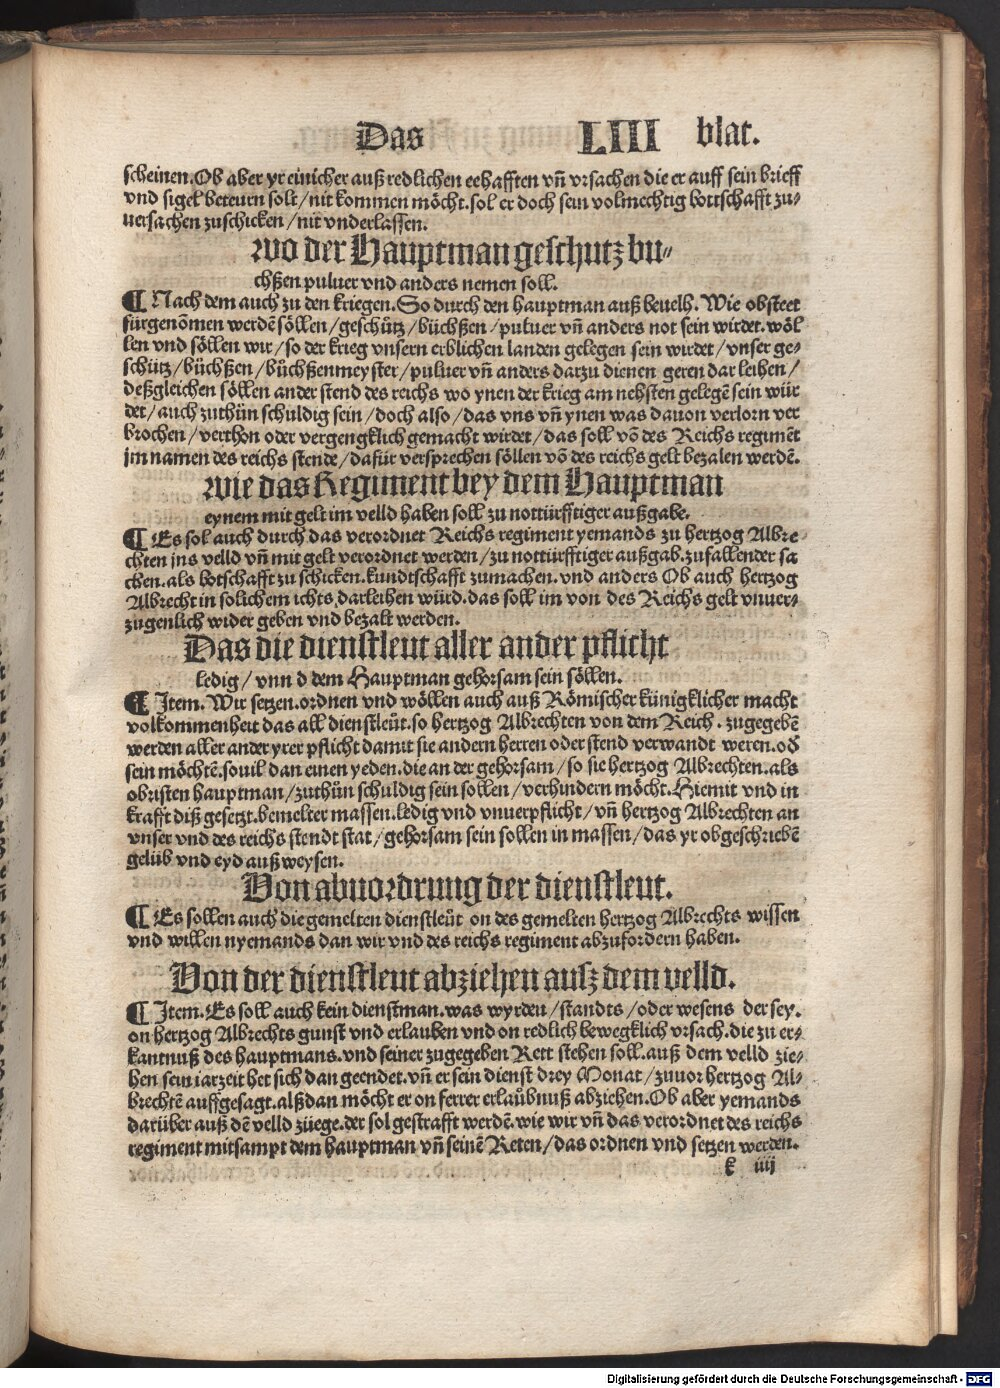 Das LIII blat.
scheinen. Ob aber yr einicher auß redlichen eehafften vñ vrsachen die er auff sein brieff
vnd sigel beteurn solt / nit kommen möcht. sol er doch sein volmechtig bottschafft zu⸗
uersachen zuschicken / nit vnderlassen.
wo der Hauptman geschutz bu⸗
chßen puluer vnd anders nemen soll.
¶ Nach dem auch zu den kriegen. So durch den hauptman auß beuelh. Wie obsteet
fürgenõmen werdẽ söllen / geschütz / büchßen / puluer vñ anders not sein wirdet. wöl
len vnd söllen wir / so der krieg vnsern erblichen landen gelegen sein wirdet / vnser ge⸗
schütz / büchßen / bůchßenmeyster / puluer vñ anders darzu dienen geren dar leihen /
deßgleichen söllen ander stend des reichs wo ynen der krieg am nehsten gelegẽ sein wür
det / auch zuthün schuldig sein / doch also / das vns vñ ynen was dauon verlorn ver
brochen / verthon oder vergengklich gemacht wirdet / das soll võ des Reichs regimẽt
im namen des reichs stende / dafür versprechen söllen võ des reichs gelt bezalen werdẽ.
wie das Regiment bey dem Hauptman
eynem mit gelt im velld haben soll zu nottürfftiger außgabe.
¶ Es sol auch durch das verordnet Reichs regiment yemands zu hertzog Albre
chten ins velld vñ mit gelt verordnet werden / zu nottürfftiger außgab. zufallender sa
chen. als botschafft zu schicken. kundtschafft zumachen. vnd anders Ob auch hertzog
Albrecht in solichem ichts darleihen würd. das soll im von des Reichs gelt vnuer⸗
zugenlich wider geben vnd bezalt werden.
Das die dienstleut aller ander pflicht
ledig / vnn d dem Hauptman gehorsam sein söllen.
¶ Item. Wir setzen. ordnen vnd wöllen auch auß Römischer künigklicher macht
volkommenheit das all dienstleüt. so hertzog Albrechten von dem Reich. zugegebẽ
werden aller ander yrer pflicht damit sie andern herren oder stend verwandt weren. od̃
sein möchtẽ. souil dan einen yeden. die an der gehorsam / so sie hertzog Albrechten. als
obristen hauptman / zuthün schuldig sein sollen / verhindern möcht. Hiemit vnd in
krafft diß gesetzt. bemelter massen. ledig vnd vnuerpflicht / vñ hertzog Albrechten an
vnser vnd des reichs stendt stat / gehorsam sein sollen in massen / das yr obgeschriebẽ
gelüb vnd eyd außweysen.
Von abuordrung der dienstleut.
¶ Es sollen auch die gemelten dienstleüt on des gemelten hertzog Albrechts wissen
vnd willen nyemands dan wir vnd des reichs regiment abzufordern haben.
Von der dienstleut abziehen ausz dem velld.
¶ Item. Es soll auch kein dienstman. was wyrden / standts / oder wesens der sey.
on hertzog Albrechts gunst vnd erlauben vnd on redlich bewegklich vrsach. die zu er⸗
kantnuß des hauptmans. vnd seiner zugegeben Rett stehen soll. auß dem velld zie⸗
hen sein iarzeit het sich dan geendet. vñ er sein dienst drey Monat / zuuor hertzog Al⸗
brechtẽ auffgesagt. alßdan möcht er on ferrer erlaůbnuß abziehen. Ob aber yemands
darüber auß dẽ velld züege. der sol gestrafft werdẽ. wie wir vñ das verordnet des reichs
regiment mitsampt dem hauptman vñ seinẽ Reten / das ordnen vnd setzen werden.
k iiij
Digitalisierung gefördert durch die Deutsche Forschungsgemeinschaft - DFG